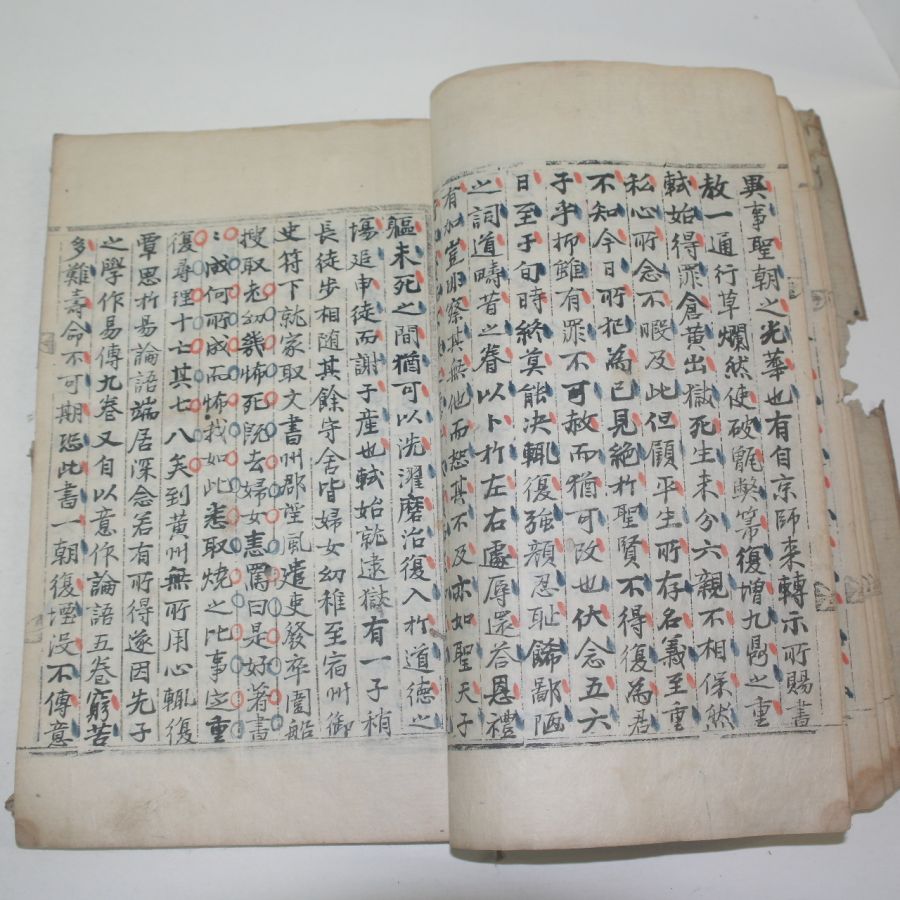 異事聖朝之光華也有自京師來轉示所賜書
教一通行草爛然使破甑弊箒復增九鼎之重
軾始得罪倉黃出獄死生未分六親不相保然
私心所念不暇及此但顧平生所存名義至重
不知今日所犯為已見絶於聖賢不得復為君
子乎抑雖有罪不可赦而猶可改也伏念五六
日至于旬時終莫能决輒復強顔忍耻餙鄙陋
之詞道疇昔之眷以卜於左右遽辱還答恩禮
有加豈非察其無他而恕其不及亦如聖天子
軀未死之間猶可以洗濯磨治復入於道德之
場追申徒而謝子産也軾始就逮獄有一子稍
長徒步相隨其餘守舍皆婦女幼稚至宿州御
史符下就家取文書州郡望風遣吏發卒圍船
搜取老幼幾怖死旣去婦女恚罵曰是好著書
：成何所成而怖我如此悉取燒之比事㝎重
復尋理十亡其七八矣到黄州無所用心輒復
覃思於易論語端居深念若有所得遂因先子
之學作易傳九卷又自以意作論語五卷窮苦
多難壽命不可期恐此書一朝復堙没不傳意